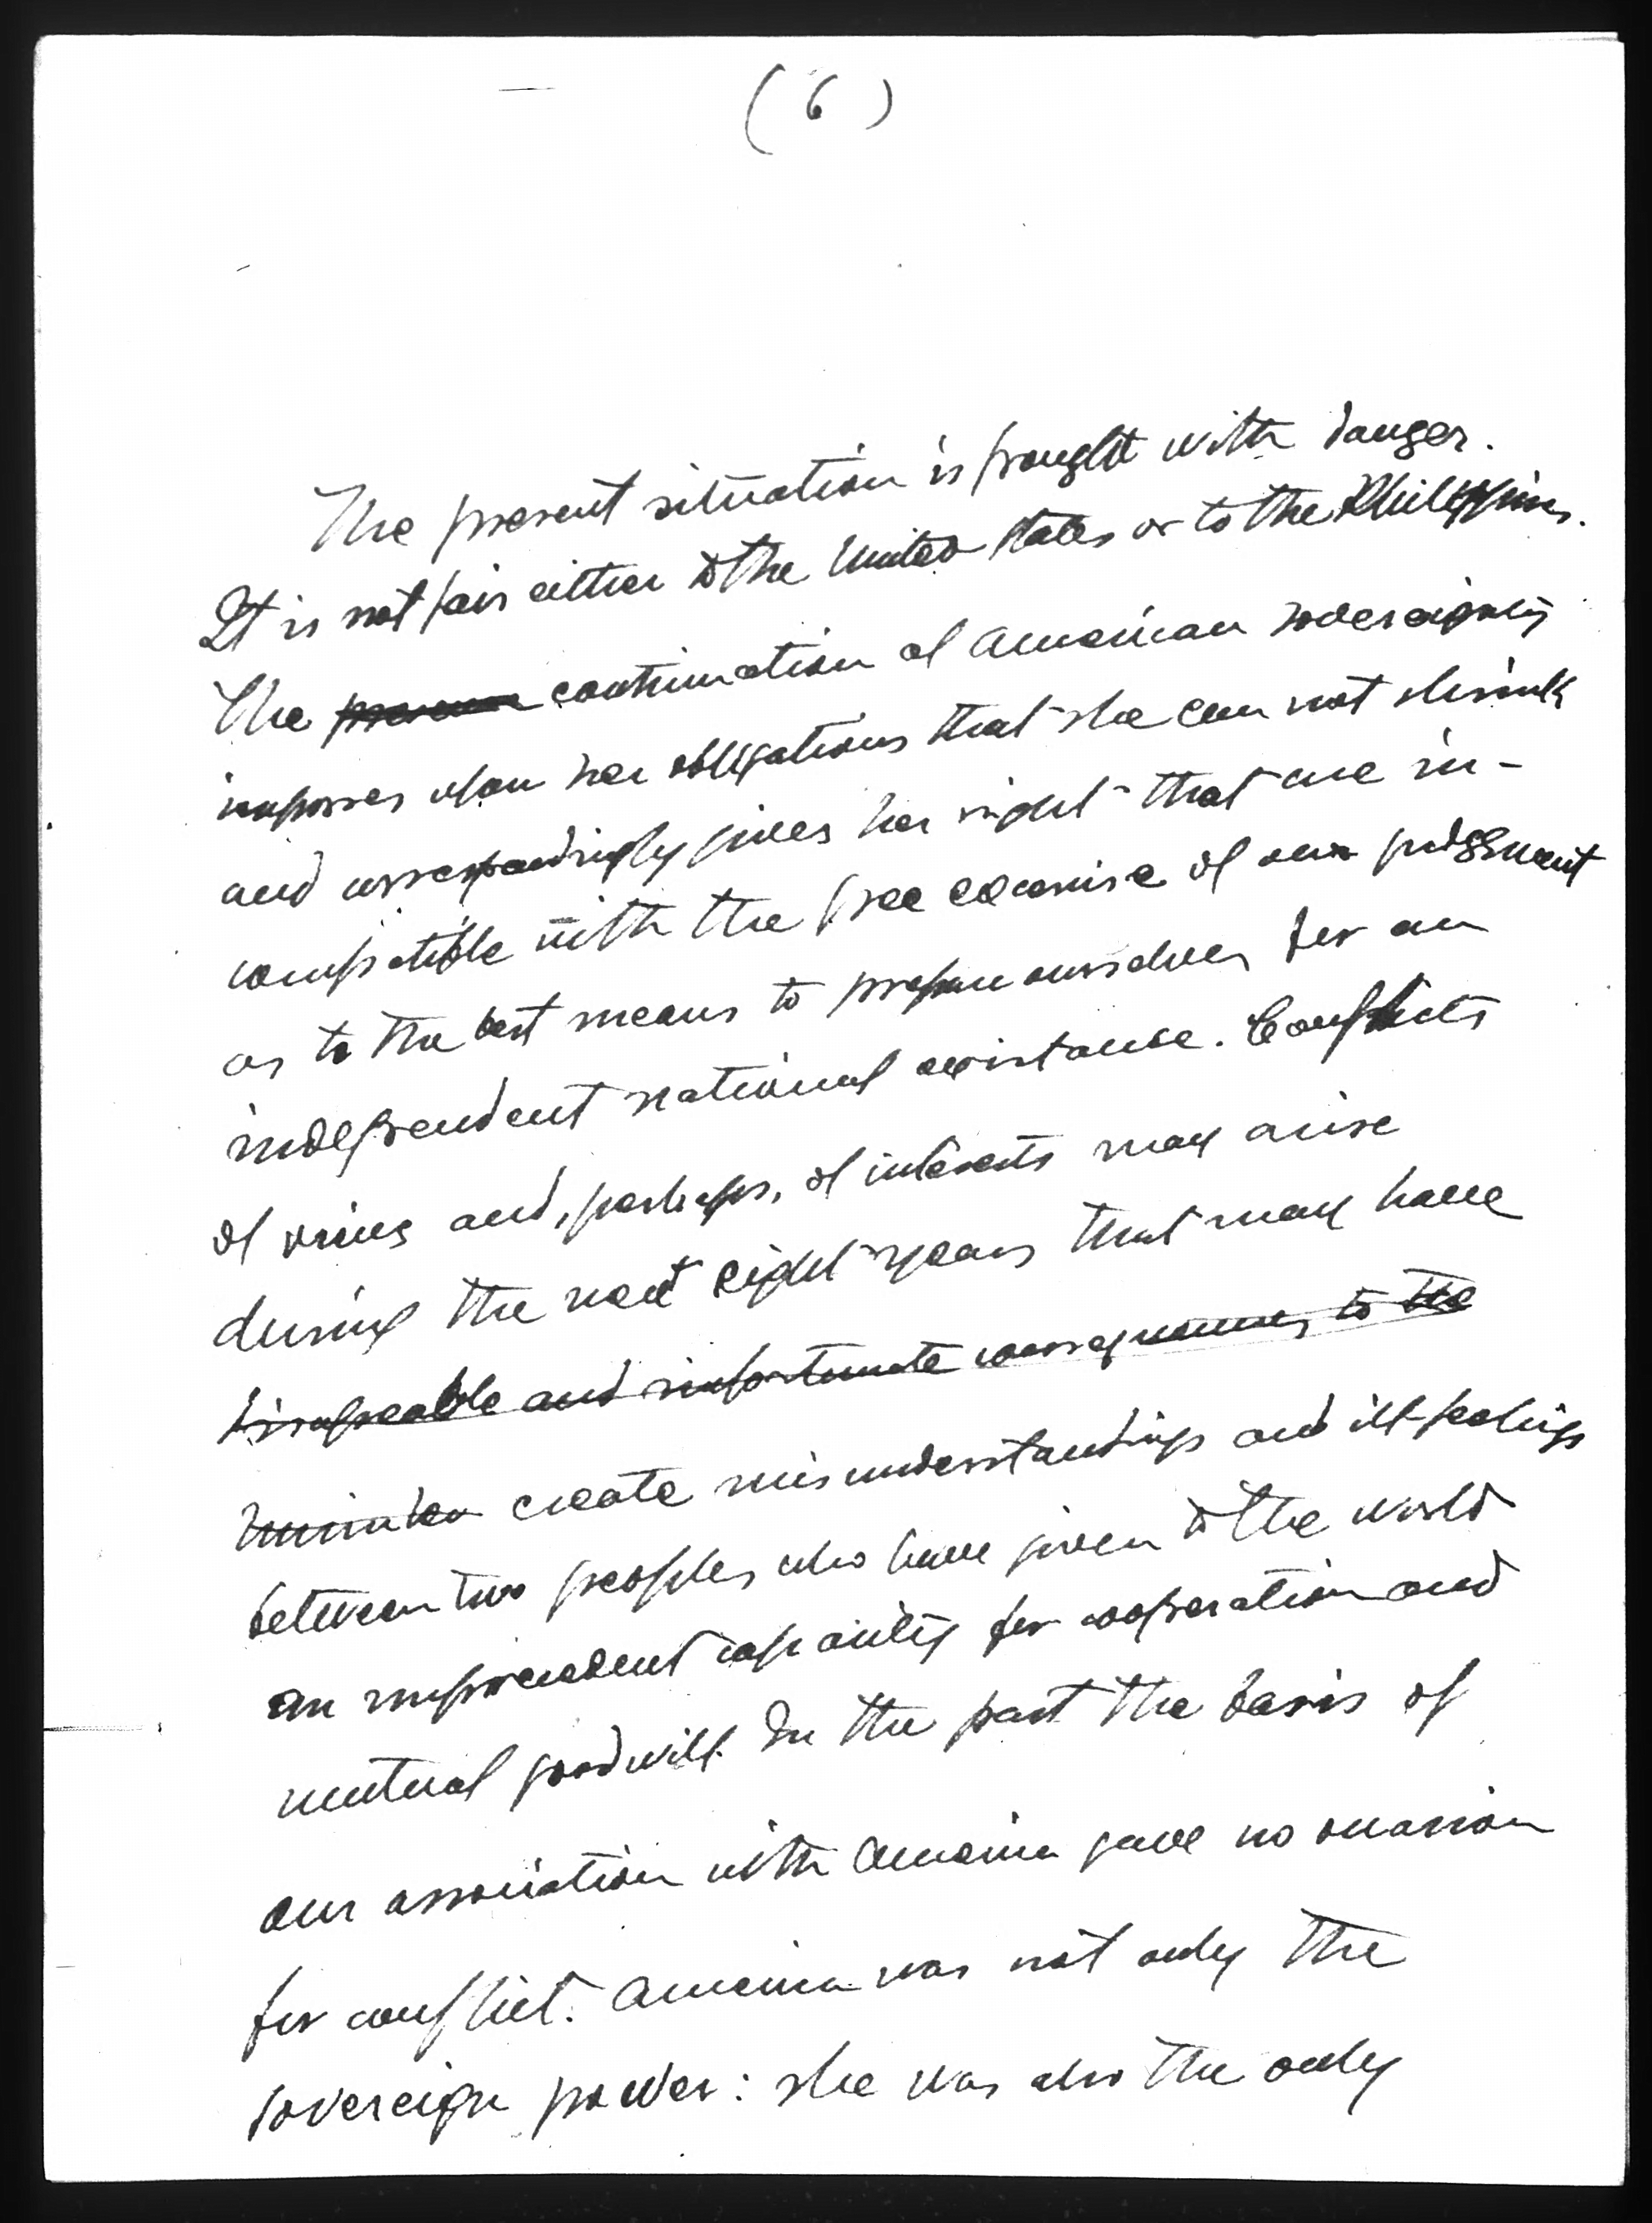 (6)
The present situation is fraught with danger.
It is not fair either to the United States or to the Philippines.
The continuation of American sovereignty
imposes upon her obligations that she can not shrink
and correspondingly gives her right that are in-
compatible with the free exercise of our judgement
as to the best means to prepare ourselves for an
independent national existance. Conflicts
of views and, perhaps, of interests may arise
during the next eight years that may have
disagreable and unfortunate consequences to the
create misunderstandings and ill-feelings
between two peoples who have given to the world
an unprecedent capacity for cooperation and
mutual goodwill. In the past the basis of
our association with America gave no occasion
for conflict. America was not only the
sovereign power: she was also the only